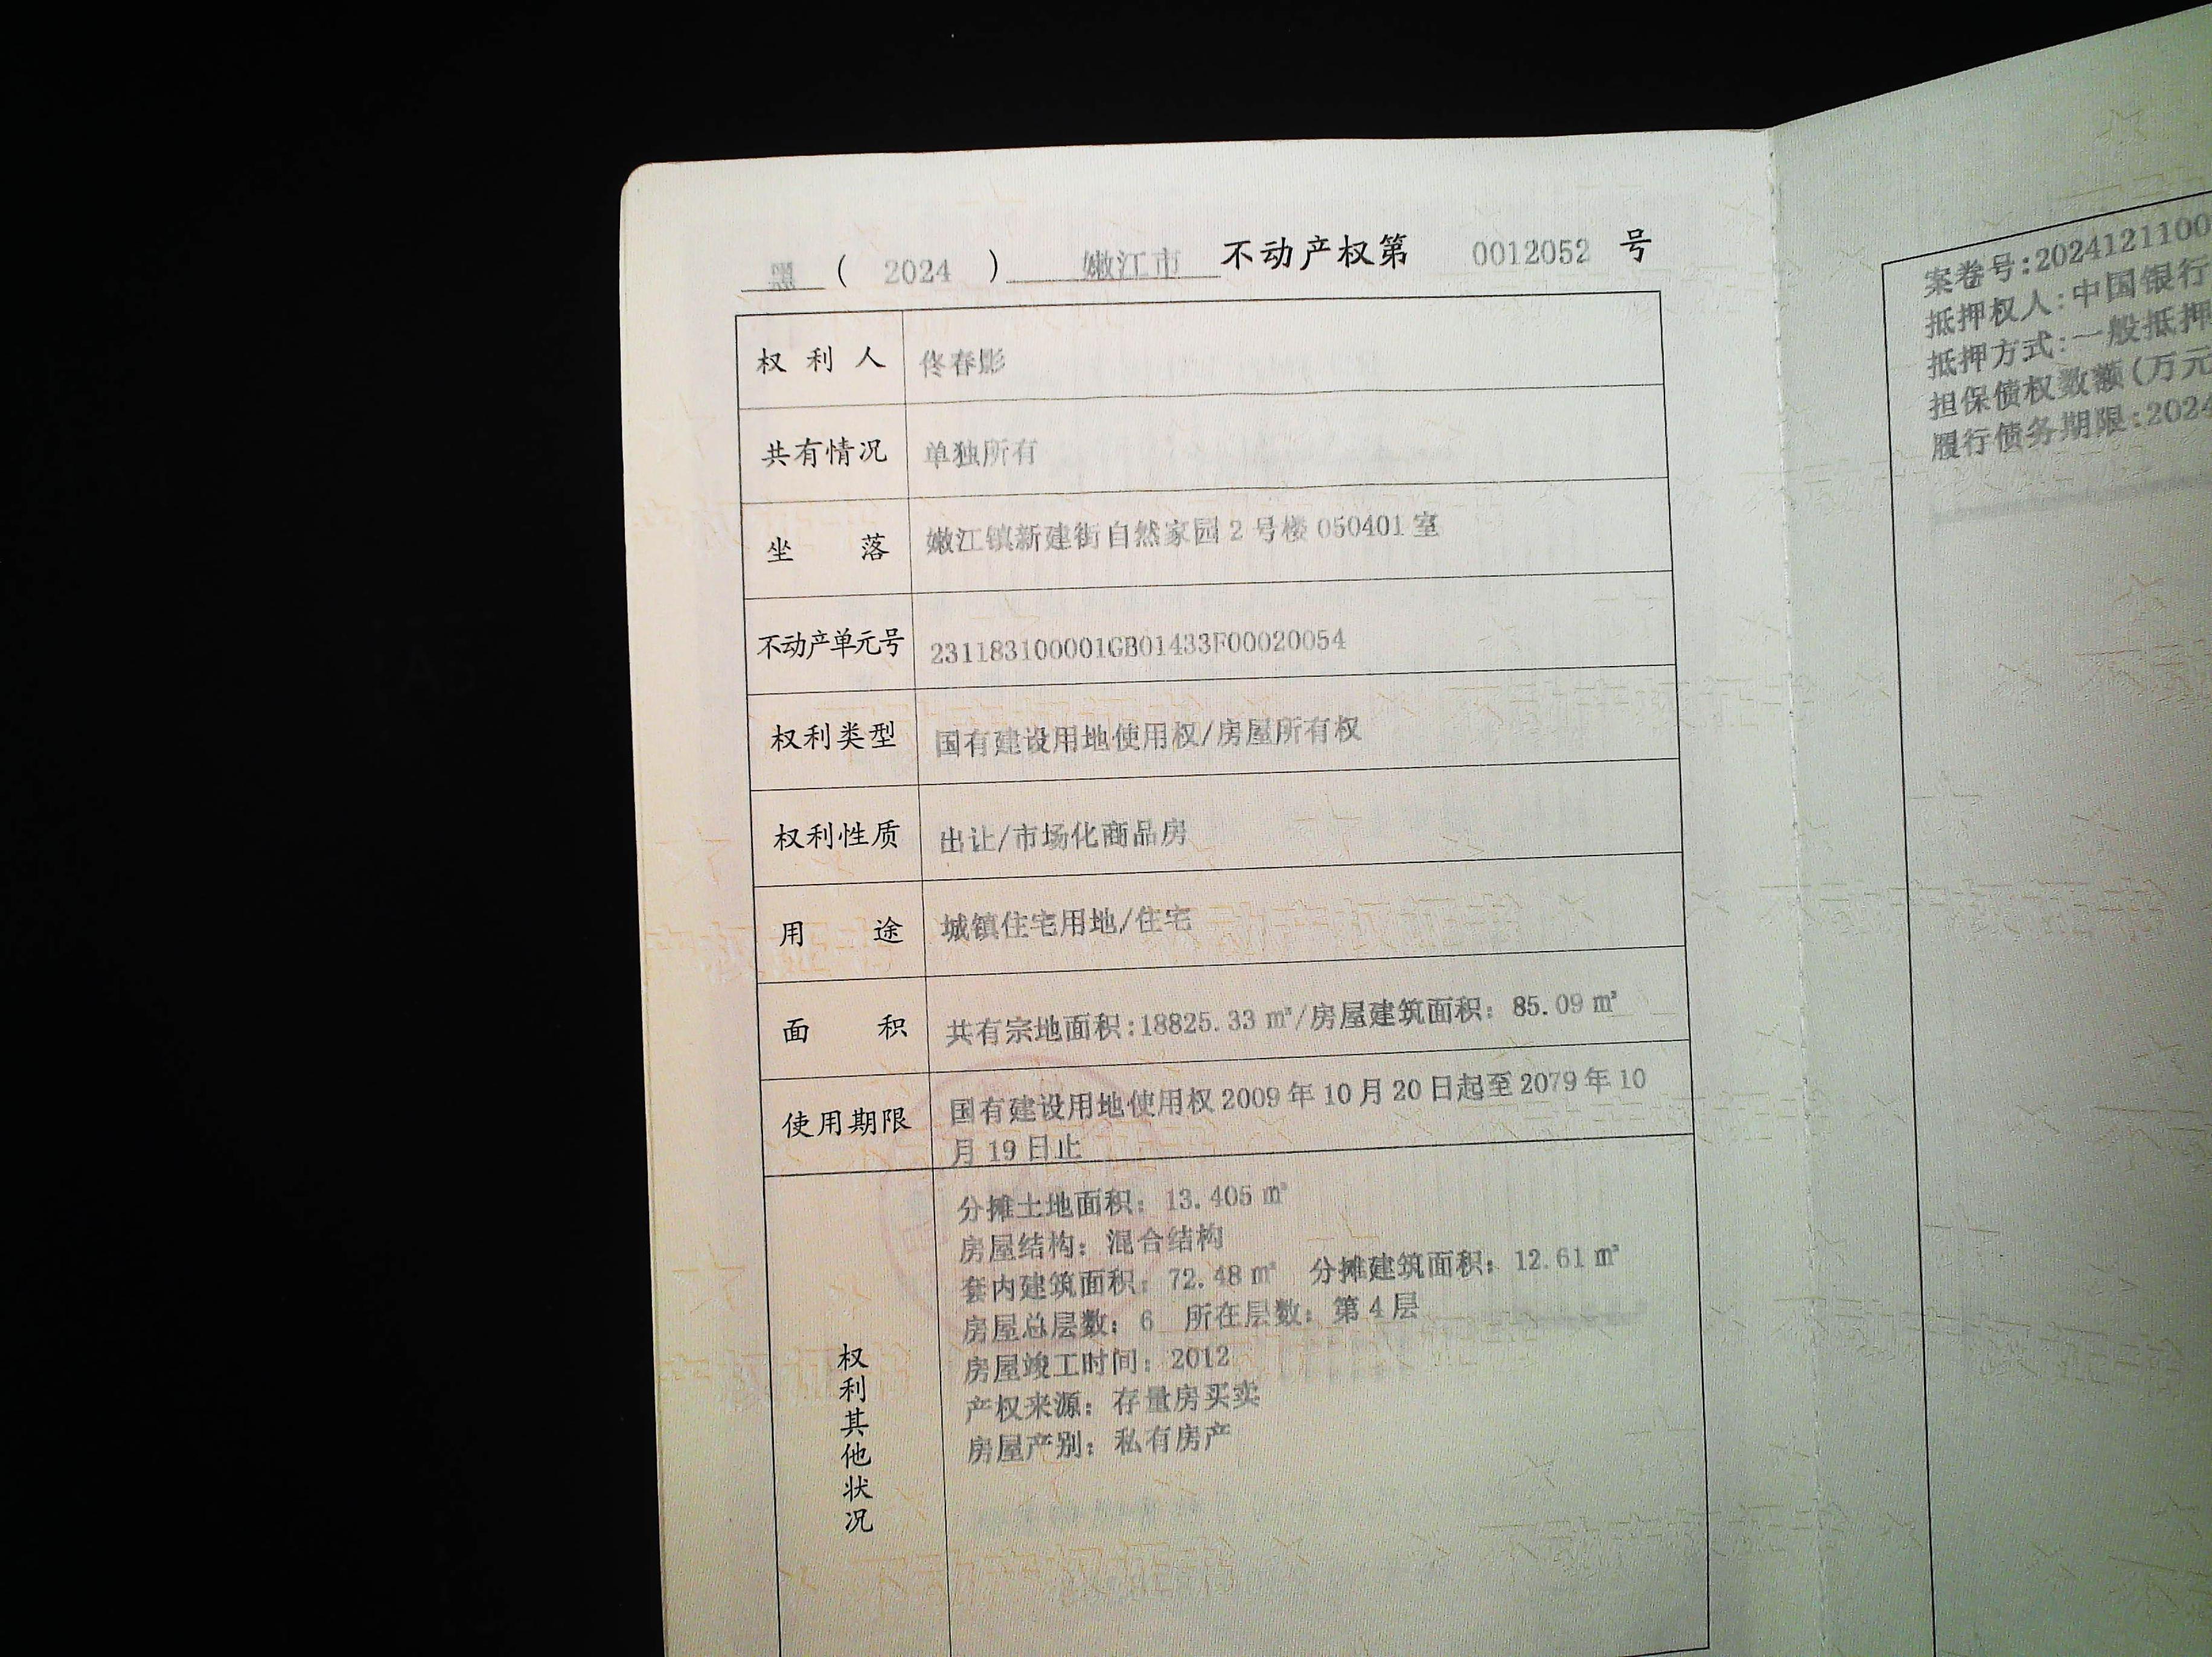 黑 ( 2024 ) 嫩江市 不动产权第 0012052 号
权利人 佟春影
共有情况 单独所有
坐落 嫩江镇新建街自然家园 2 号楼 050401 室
不动产单元号 231183100001GB01433F00020054
权利类型 国有建设用地使用权/房屋所有权
权利性质 出让/市场化商品房
用途 城镇住宅用地/住宅
面积 共有宗地面积:18825.33 ㎡/房屋建筑面积: 85.09 ㎡
使用期限 国有建设用地使用权 2009 年 10 月 20 日起至 2079 年 10
月 19 日止
权利其他状况
分摊土地面积: 13.405 ㎡
房屋结构: 混合结构
套内建筑面积: 72.48 ㎡ 分摊建筑面积: 12.61 ㎡
房屋总层数: 6 所在层数: 第 4 层
房屋竣工时间: 2012
产权来源: 存量房买卖
房屋产别: 私有房产
案卷号:2024121100
抵押权人:中国银行
抵押方式:一般抵押
担保债权数额(万元
履行债务期限:2024